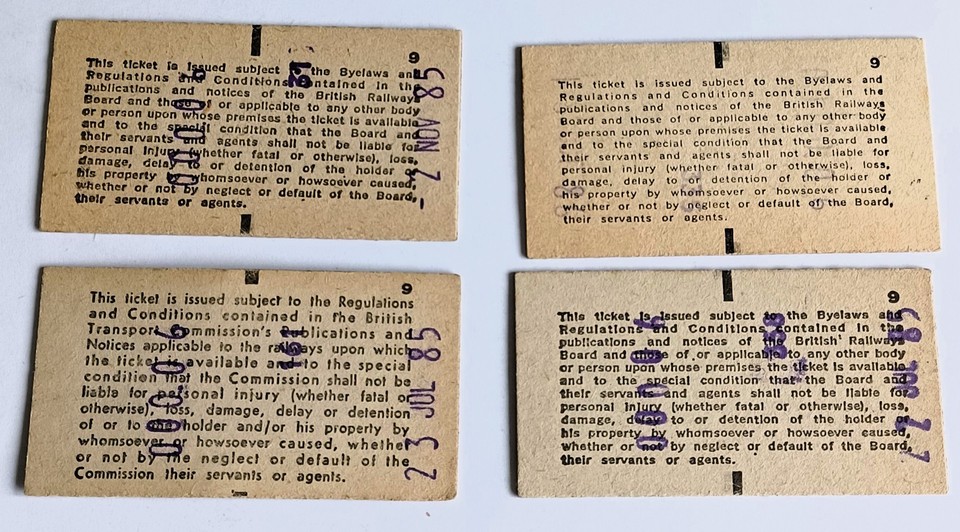 9
This ticket is issued subject to the Byelaws and
Regulations and Conditions contained in the
publications and notices of the British Railways
Board and those of or applicable to any other body
or person upon whose premises the ticket is available
and to the special condition that the Board and
their servants and agents shall not be liable for
personal injury (whether fatal or otherwise), loss,
damage, delay or detention of the holder or
his property by whomsoever or howsoever caused,
whether or not by neglect or default of the Board,
their servants or agents.
2 NOV 85
9
This ticket is issued subject to the Byelaws and
Regulations and Conditions contained in the
publications and notices of the British Railways
Board and those of or applicable to any other body
or person upon whose premises the ticket is available
and to the special condition that the Board and
their servants and agents shall not be liable for
personal injury (whether fatal or otherwise), loss,
damage, delay to or detention of the holder or
his property by whomsoever or howsoever caused,
whether or not by neglect or default of the Board,
their servants or agents.
9
This ticket is issued subject to the Regulations
and Conditions contained in the British
Transport Commission's Publications and
Notices applicable to the railways upon which
the ticket is available and to the special
condition that the Commission shall not be
liable for personal injury (whether fatal or
otherwise), loss, damage, delay or detention
of or to the holder and/or his property by
whomsoever or howsoever caused, whether
or not by the neglect or default of the
Commission their servants or agents.
23 JUL 85
9
This ticket is issued subject to the Byelaws and
Regulations and Conditions contained in the
publications and notices of the British Railways
Board and those of or applicable to any other body
or person upon whose premises the ticket is available
and to the special condition that the Board and
their servants and agents shall not be liable for
personal injury (whether fatal or otherwise), loss,
damage, delay to or detention of the holder or
his property by whomsoever or howsoever caused,
whether or not by neglect or default of the Board,
their servants or agents.